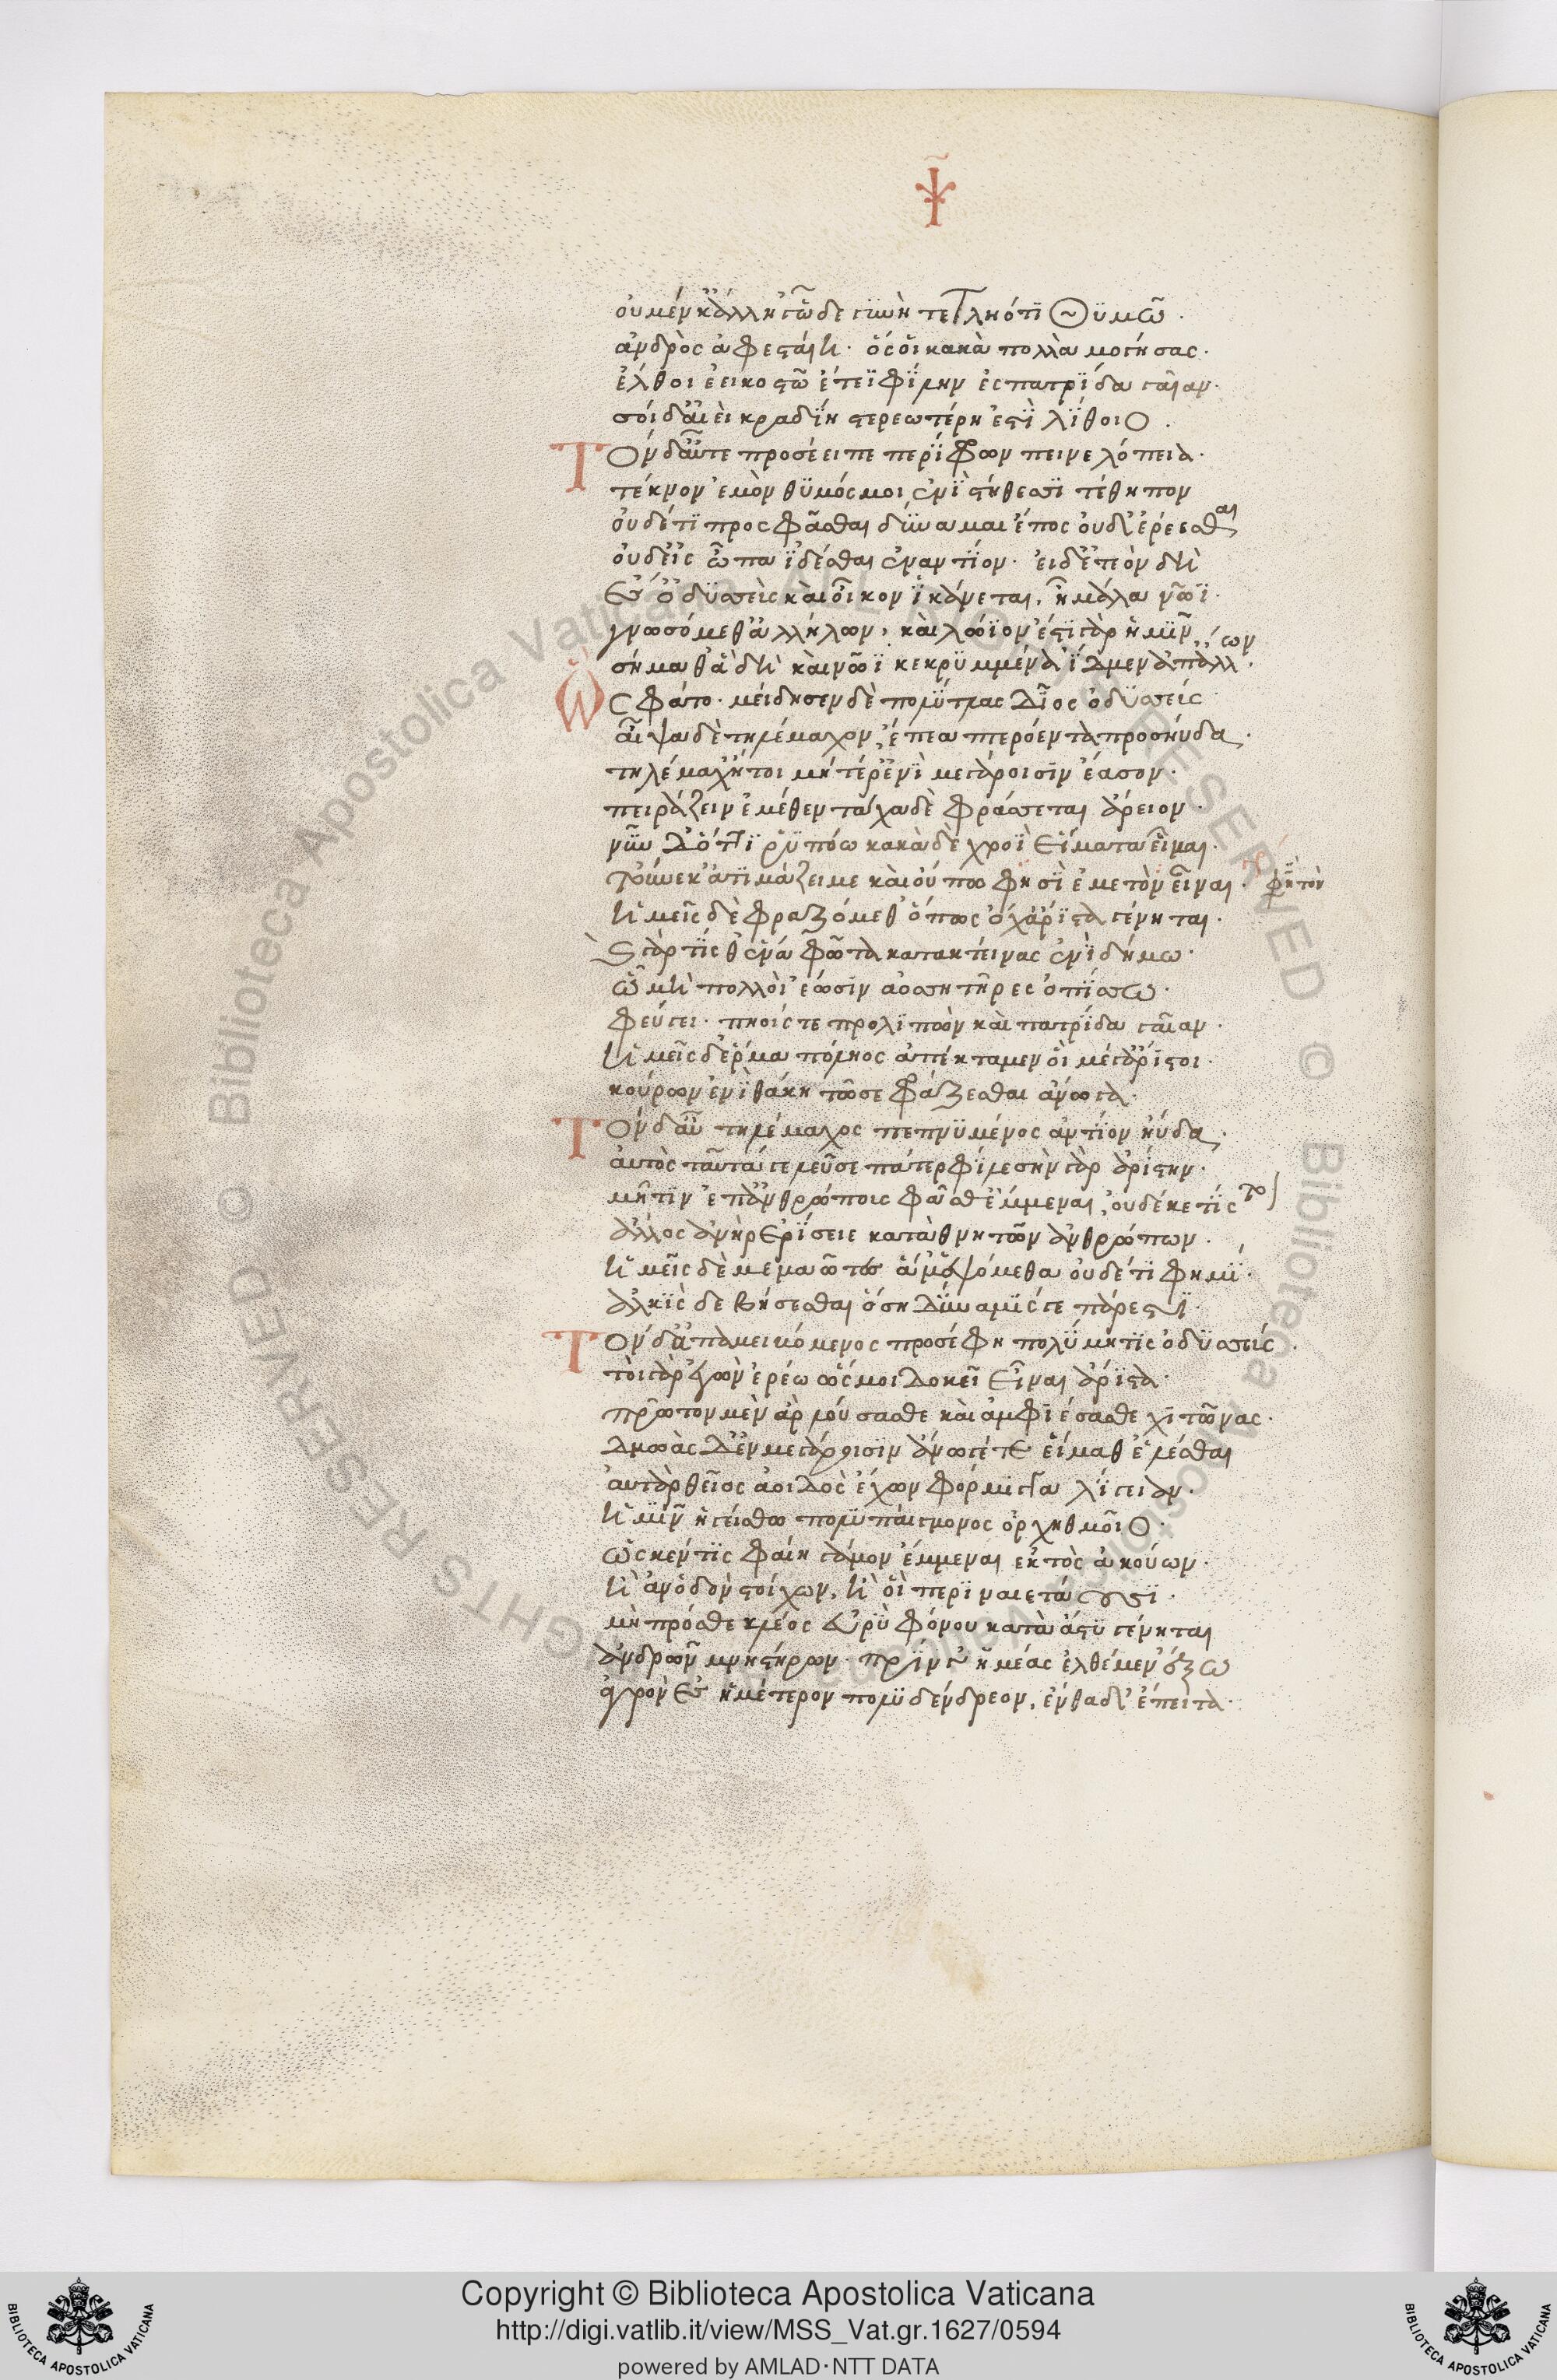 οὐ μέν κ' ἄλλη γ' ὧδε γυνὴ τετληότι θυμῶ.
ἀνδρὸς ἀφεσταίη. ὅς οἱ κακὰ πολλὰ μογήσας.
ἔλθοι ἐεικοστῶ ἔτεϊ φίλην ἐς πατρίδα γαῖαν.
σοὶ δ' αἰεὶ κραδίη στερεωτέρη ἐστὶ λίθοιο.
Τὸν δ' αὖτε προσέειπε περίφρων πηνελόπεια.
τέκνον ἐμὸν θυμός μοι ἐνὶ στήθεσσι τέθηπεν
οὐδέ τι προσφᾶσθαι δύναμαι ἔπος οὐδ' ἐρέεσθαι
οὐδ' εἰς ὦπα ἰδέσθαι ἐναντίον. εἰ δ' ἐτεὸν δὴ
ἔστ' ὀδυσσεὺς καὶ οἶκον ἱκάνεται, ἦ μάλα νῶϊ.
γνωσόμεθ' ἀλλήλων, καὶ λώϊον ἔστι γὰρ ἡμῖν
σήμαθ' ἃ δὴ καὶ νῶϊ κεκρυμμένα ἴδμεν ἀπ' ἄλλων.
Ὣς φάτο. μείδησεν δὲ πολύτλας δῖος ὀδυσσεύς
αἶψα δὲ τηλέμαχον, ἔπεα πτερόεντα προσηύδα.
τηλέμαχ' ἤτοι μητέρ' ἐνὶ μεγάροισιν ἔασον.
πειράζειν ἐμέθεν τάχα δὲ φράσσεται ἄρειον.
νῦν δ' ὅττι ῥυπόω κακὰ δὲ χροῒ εἵματα εἷμαι.
τούνεκ' ἀτιμάζει με καὶ οὔπω φησὶ ἐμὲ τὸν εἶναι. φῆ τὸν
ἡμεῖς δὲ φραζόμεθ' ὅπως ὄχ' ἄριστα γένηται.
καὶ γάρ τίς θ' ἕνα φῶτα κατακτείνας ἐνὶ δήμω.
ὧ μὴ πολλοὶ ἔωσιν ἀοσσητῆρες ὀπίσσω.
φεύγει. πηούς τε προλιπὼν καὶ πατρίδα γαῖαν.
ἡμεῖς δ' ἕρμα πόληος ἀπέκταμεν οἳ μέγ' ἄριστοι.
κούρων εἰν ἰθάκη τῶ σε φράζεσθαι ἄνωγα.
Τὸν δ' αὖ τηλέμαχος πεπνυμένος ἀντίον ηὔδα.
αὐτὸς ταῦτά γε λεῦσσε πάτερ φίλε σὴν γὰρ ἀρίστην.
μῆτιν ἐπ' ἀνθρώποις φάσθ' ἔμμεναι, οὐδέ κέ τίς τοι
ἄλλος ἀνὴρ ἐρίσειε καταθνητῶν ἀνθρώπων.
ἡμεῖς δὲ μεμαῶτες ἅμ' ἑψόμεθα οὐδέ τι φημί.
ἀλκῆς δευήσεσθαι ὅση δύναμίς γε πάρεστι.
Τὸν δ' ἀπαμειβόμενος προσέφη πολύμητις ὀδυσσεύς.
τοὶ γὰρ ἐγὼν ἐρέω ὥς μοι δοκεῖ εἶναι ἄριστα.
πρῶτον μὲν ἂρ λούσασθε καὶ ἀμφιέσασθε χιτῶνας.
δμωὰς δ' ἐν μεγάροισιν ἀνώγετε εἵμαθ' ἑλέσθαι
αὐτὰρ θεῖος ἀοιδὸς ἔχων φόρμιγγα λίγειαν.
ἡμῖν ἡγείσθω πολυπαίγμονος ὀρχηθμοῖο.
ὥς κέν τις φαίη γάμον ἔμμεναι ἐκτὸς ἀκούων.
ἢ ἀν' ὁδὸν στείχων, ἢ οἳ περιναιετάουσι.
μὴ πρόσθε κλέος εὐρὺ φόνου κατὰ ἄστυ γένηται
ἀνδρῶν μνηστήρων. πρίν γ' ἡμέας ἐλθέμεν ἔξω
ἀγρὸν ἐς ἡμέτερον πολυδένδρεον, ἔνθα δ' ἔπειτα.
Copyright © Biblioteca Apostolica Vaticana
http://digi.vatlib.it/view/MSS_Vat.gr.1627/0594
powered by AMLAD·NTT DATA